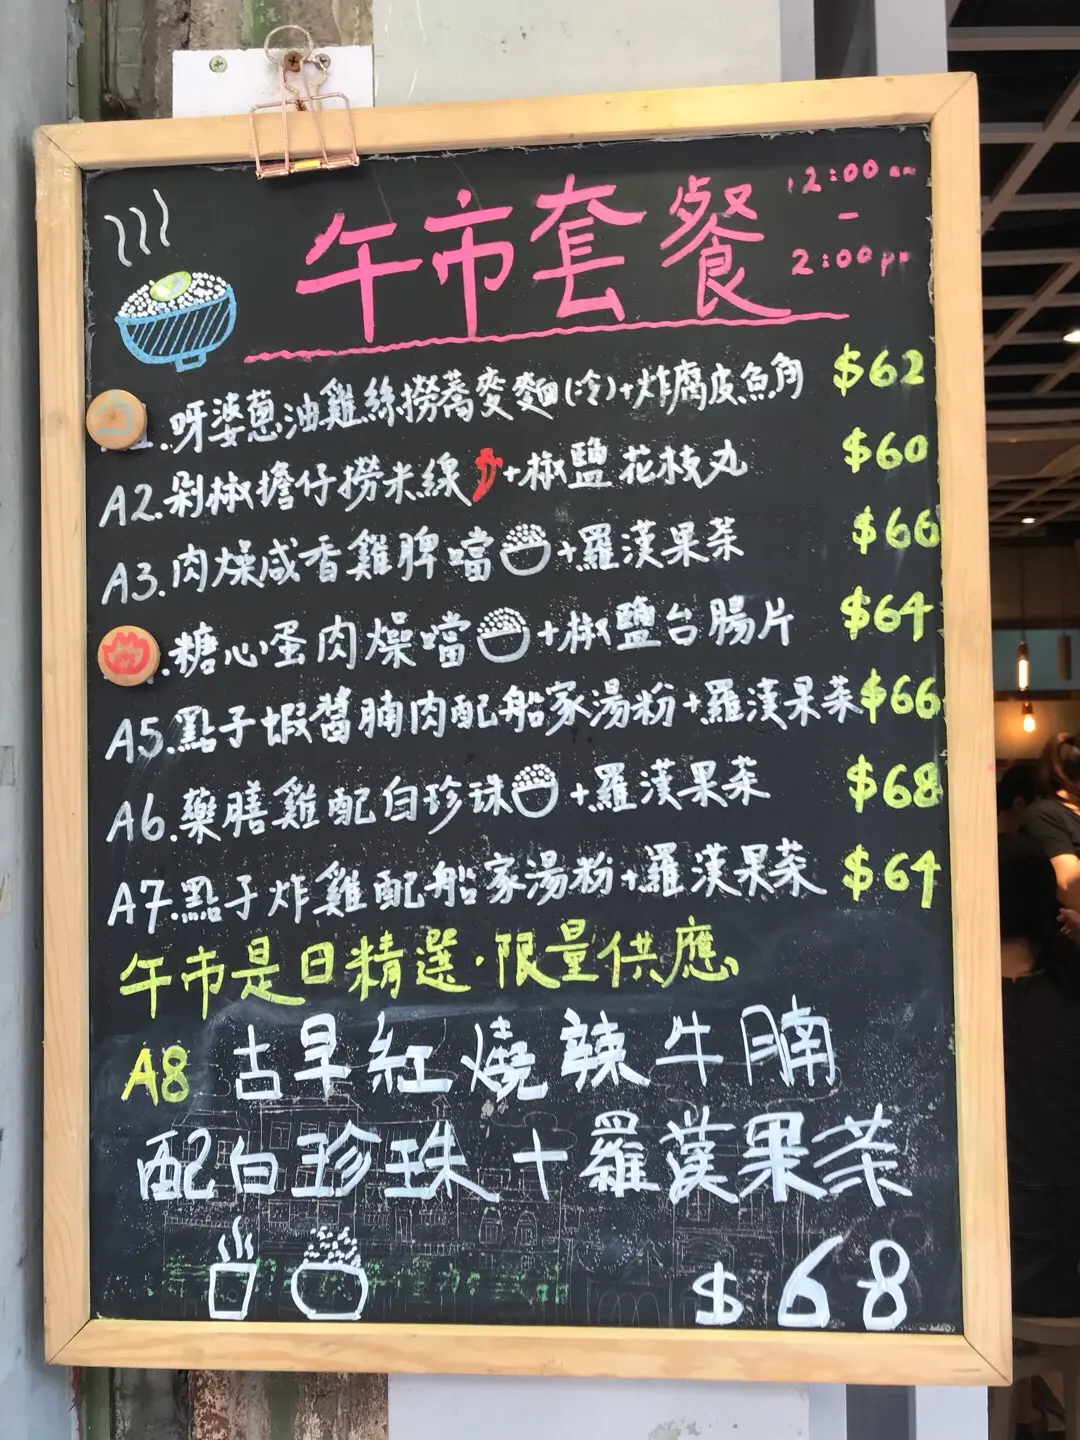 午市套餐
12:00 am
-
2:00 pm
1.呀婆蔥油雞絲撈蕎麥麵(冷)+炸腐皮魚角 $62
A2.剁椒擔仔撈米線+椒鹽花枝丸 $60
A3.肉燥咸香雞脾噹+羅漢果茶 $66
.糖心蛋肉燥噹+椒鹽台腸片 $64
A5.點子蝦醬腩肉配船家湯粉+羅漢果茶 $66
A6.藥膳雞配白珍珠+羅漢果茶 $68
A7.點子炸雞配船家湯粉+羅漢果茶 $64
午市是日精選·限量供應
A8 古早紅燒辣牛腩
配白珍珠+羅漢果茶
$68